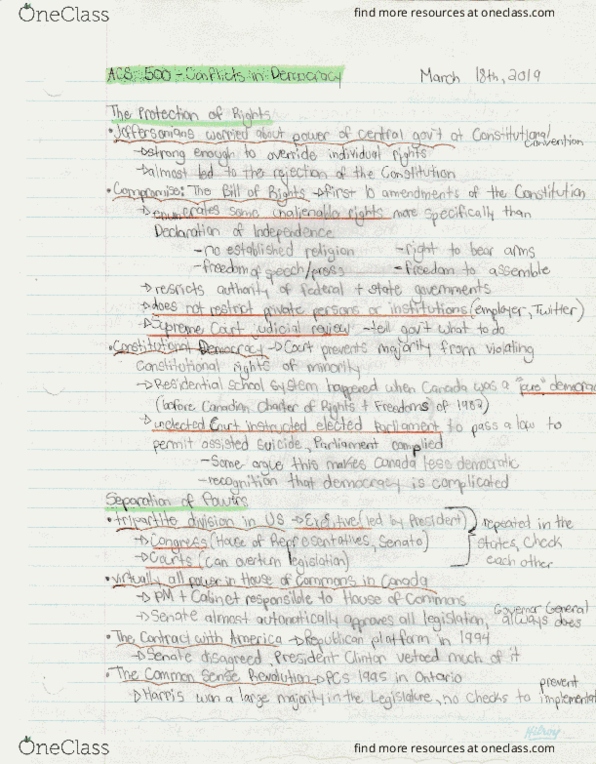 OneClass
find more resources at oneclass.com
ACS 500 - Conflicts in Democracy
March 18th, 2019
The Protection of Rights
• Jeffersonians worried about power of central gov't at Constitutional Convention
→ strong enough to override individual rights
→ almost led to the rejection of the Constitution
• Compromise: The Bill of Rights → first 10 amendments of the Constitution
→ enumerates some unalienable rights more specifically than
Declaration of Independence
- no established religion - right to bear arms
- freedom of speech/press - freedom to assemble
→ resricts authority of federal + state governments
→ does not restrict private persons or institutions (employer, Twitter)
→ Supreme Court judicial review - tell gov't what to do
• Constitutional Democracy → Court prevents majority from violating
constitutional rights of minority
→ Residential school system happened when Canada was a "pure" democra
(before Canadian Charter of Rights + Freedoms of 1982)
→ unelected Court instructed elected Parliament to pass a law to
permit assisted suicide, Parliament complied
- Some argue this makes Canada less democratic
- recognition that democrasy is complicated
Separation of Powers
• tripartite division in US → Executive (led by President)
→ Congress (House of Representatives, Senate)
→ Courts (can overturn legislation)
repeated in the
states, check
each other
• virtually all power in House of Commons in Canada
→ PM + Cabinet responsible to House of Commons
→ Senate almost automatically approves all legislation, Governor General always does
• The Contract with America → Republican platform in 1994
→ Senate disagreed, President Clinton vetoed much of it
• The Common Sense Revolution → PCs 1995 in Ontario
→ Harris won a large majority in the Legislature, no checks to prevent implementa
Hilroy
OneClass
find more resources at oneclass.com